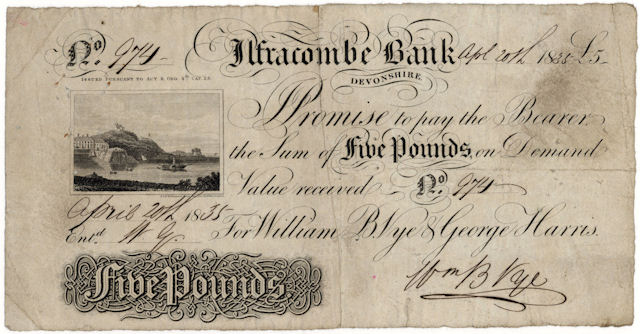 No 974 Ilfracombe Bank Apl 20th 1835 £5
ISSUED PURSUANT TO ACT 9, GEO. 4th CAP. 23.
DEVONSHIRE.
I Promise to pay the Bearer
the Sum of Five Pounds, on Demand
Value received No 974
April 20th 1835
Entd. For William B Nye & George Harris.
Wm B Nye
Five Pounds